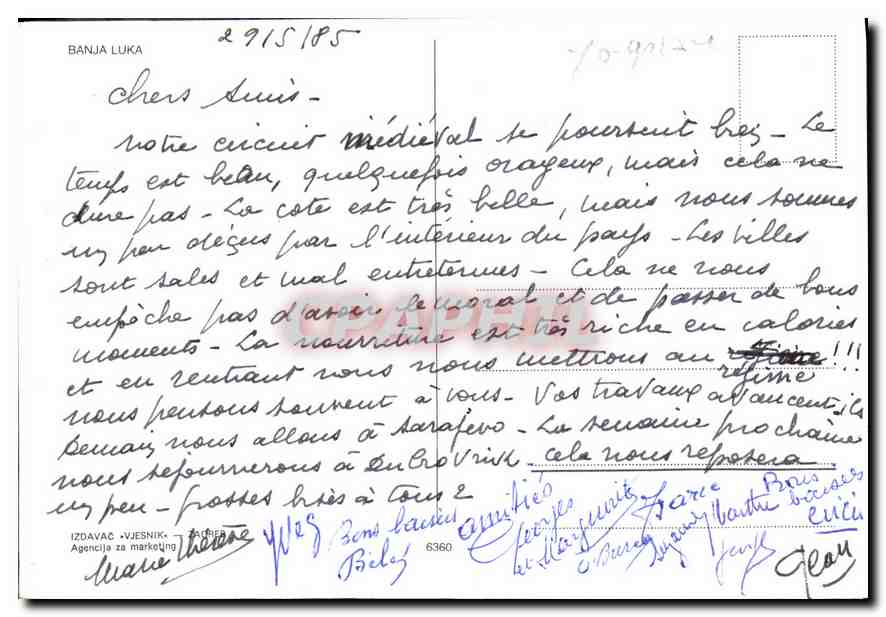 BANJA LUKA
29/5/85
Yougoslavie
Chers Amis -
Notre circuit médiéval se poursuit bien - Le
temps est beau, quelquefois orageux, mais cela ne
dure pas - La côte est très belle, mais nous sommes
un peu déçus par l'intérieur du pays - Les villes
sont sales et mal entretenues - Cela ne nous
empêche pas d'avoir le moral et de passer de bons
moments - La nourriture est très riche en calories
et en rentrant nous nous mettrons au régime !!!
régime
nous pensons souvent à vous - Vos travaux avancent-ils
Demain nous allons à Sarajevo - La semaine prochaine
nous séjournerons à Dubrovnik cela nous reposera
un peu - grosses bises à tous 2
CPAPHIL
Marie Thérèse
Yves
Bons baisers
amitiés
Georges
et Marguerite
Bons
baisers
Jean
IZDAVAČ «VJESNIK» — ZAGREB
Agencija za marketing
6360